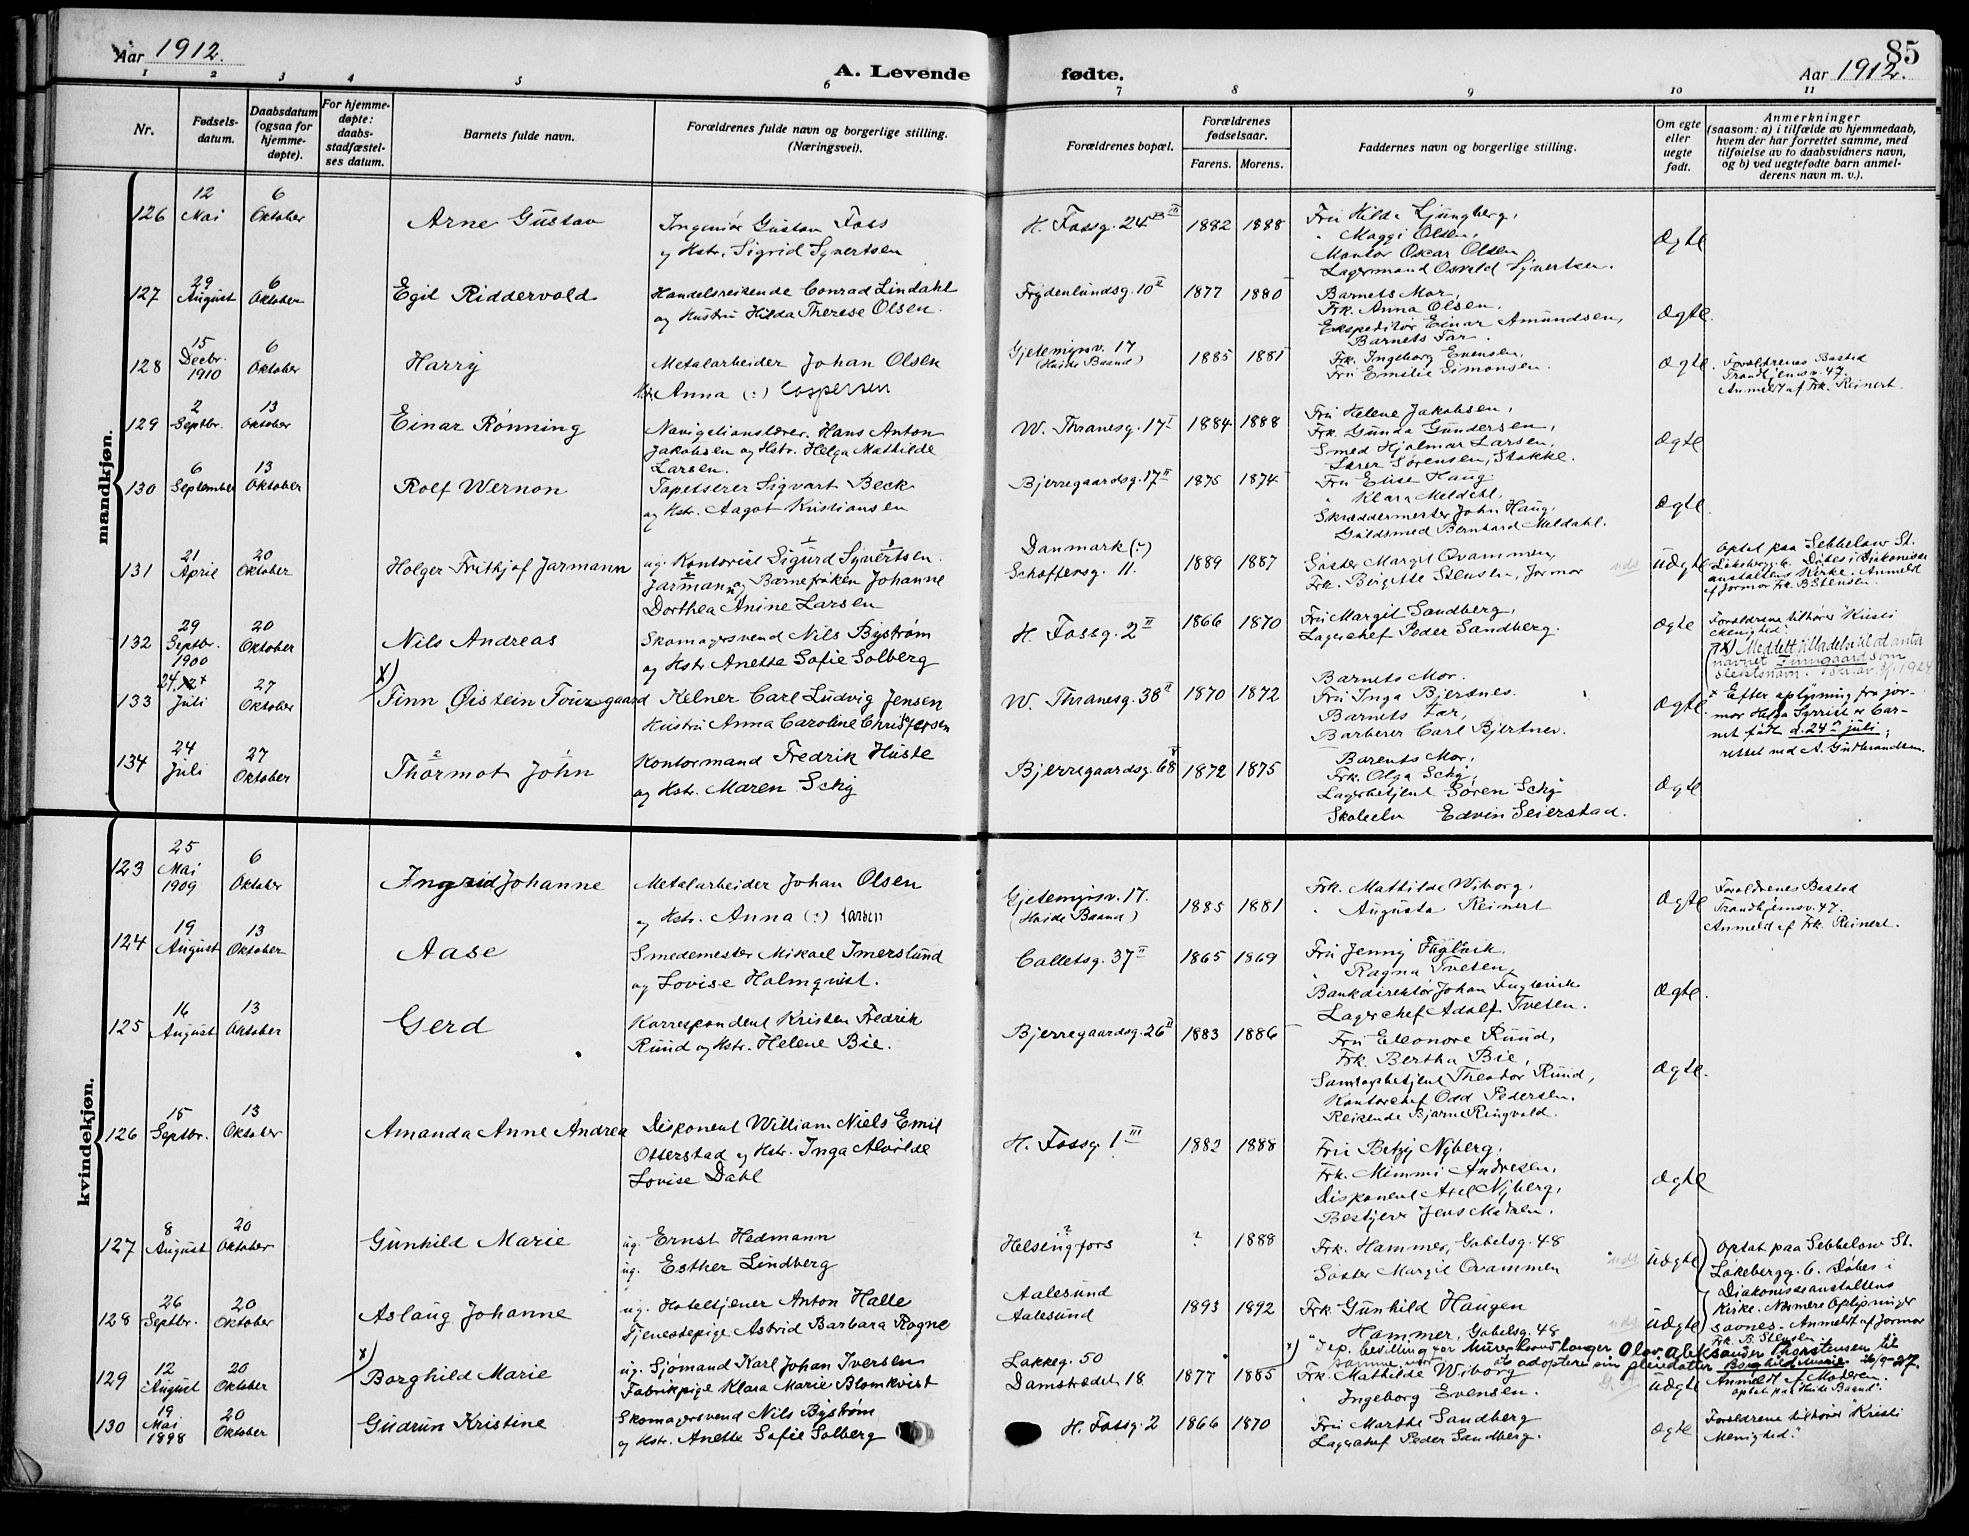 Aar 1912.
A. Levende
fødte.
85
Aar 1912.
1 2 3 4 5 6 7 8 9 10 11
Nr.
Fødsels-
datum.
Daabsdatum
(ogsaa for
hjemme-
døpte).
For hjemme-
døpte:
daabs-
stadfæstel-
ses datum.
Barnets fulde navn.
Forældrenes fulde navn og borgerlige stilling.
(Næringsvei).
Forældrenes bopæl.
Forældrenes
fødselsaar.
Farens. Morens.
Faddernes navn og borgerlige stilling.
Om egte
eller
uegte
født.
Anmerkninger
(saasom: a) i tilfælde av hjemmedaab,
hvem der har forrettet samme, med
tilføielse av to daabsvidners navn,
og b) ved uegtefødte barn anmel-
derens navn m. v.).
mandkjøn.
126
12
Mai
6
Oktober
Arne Gustav
Ingeniør Gustav Foss
og Hstr. Sigrid Syvertsen
H. Fossg. 24 III
1882 1888
Fru Hilda Ljungberg,
" Maggi Olsen,
Montør Oscar Olsen
Lagermand Osvald Syvertsen.
Ægte
127
29
August
6
Oktober
Egil Riddervold
Handelsreisende Conrad Lindahl
og Hustru Hilda Therese Olsen.
Frydenlundsg. 10 II
1877 1880
Barnets Mor,
Frk. Anna Olsen.
Ekspeditør Einar Amundsen,
Barnets Far.
Ægte.
128
15
Decbr.
1910
6
Oktober
Harry
Metalarbeider Johan Olsen
Hstr. Anna (:) Caspersen
Gjetemyrsv. 17
(Haide Baand)
1885 1881
Frk. Ingeborg Evensen,
Fru Emilie Simonsen.
Ægte.
Forældrenes Bosted
Trondhjemsv. 47.
Anmeldt af Frk. Reinert.
129
2
Septbr.
13
Oktober
Einar Rønning
Navigationslærer Hans Anton
Jakobsen og Hstr. Helga Mathilde
Larsen.
W. Thranesg. 17 I
1884 1888
Fru Helene Jakobsen,
Frk. Gunda Gundersen,
Smed Hjalmar Larsen,
Lærer Sørensen, Stokke.
Ægte
130
6
September
13
Oktober
Rolf Wernon
Tapetserer Sigvart Beck
og Hstr. Aagot Kristiansen
Bjerregaardsg. 17 II
1875 1874
Fru Elise Haug
" Klara Meldahl,
Skræddermester John Haug,
Guldsmed Bernhard Meldahl.
Ægte
131
21
April
20
Oktober
Holger Frithjof Jarmann
ug. Kontorist Sigurd Syvertsen
Jarmann, Barnefrøken Johanne
Dorthea Anine Larsen
Danmark (:)
Schøffersg. 11.
1889 1887
Søster Margit Ovammen,
Frk. Birgitte Stensen, Jormor
uegte
Optat paa Sebbelow St.
Løkebergg. 6. Døbes i Diakonisse
anstaltens Kirke. Anmeldt
af Jormor Frk. B. Stensen.
132
29
Septbr.
1900
20
Oktober
Nils Andreas
Skomagersvend Nils Byström
og Hstr. Anette Sofie Solberg
H. Fossg. 2 II
1866 1870
Fru Margit Sandberg,
Lagerchef Peder Sandberg.
Ægte
Forældrene tilhører "Kristi
Menighed".
x) Meddelt tilladelse til at anta
navnet Tuurgaard som
slektsnavn.
133
24.
Juli
27
Oktober
x)
Finn Øistein Tourgaard
Kelner Carl Ludvig Jensen
Hustru Anna Caroline Christensen
W. Thranesg. 38 II
1870 1872
Barnets Mor.
Fru Inga Bjertnes.
Barnets Far,
Barberer Carl Bjertnes.
Ægte.
+ Efter oplysning fra jor-
mor Helga Syrrist er bar-
net født d. 24de juli;
rettet ved A. Gudbrandsen.
134
24
Juli
27
Oktober
Thormot John
Kontormand Fredrik Huste
og Hstr. Maren Schy
Bjerregaardsg. 68 V
1872 1875
Barents Mor,
Frk. Olga Schy,
Lagerbetjent Søren Schy
Skoleelv Edvin Seierstad.
Ægte
kvindekjøn.
123
25
Mai
1909
6
Oktober
Ingrid Johanne
Metalarbeider Johan Olsen
og Hstr. Anna (:) Larsen
Gjetemyrsv. 17.
(Haide Baand)
1885 1881
Frk. Mathilde Wiborg,
" Augusta Reinert
Ægte
Forældrenes Bosted
Trondhjemsv. 47.
Anmeld af Frk. Reinert.
124
19
August
13
Oktober
Aase
Smedemester Mikael Imerslund
og Lovise Holmqvist.
Colletsg. 37 II
1865 1869
Fru Jenny Fuglevik
" Ragna Tveten,
Bankdirektør Johan Fuglevik
Lagerchef Adolf Tveten.
Ægte.
125
16
August
13
Oktober
Gerd
Korrespondent Kristen Fredrik
Ruud og Hstr. Helene Bie.
Bjerregaardsg. 26 II
1883 1886
Fru Eleonore Ruud,
Frk. Bertha Bie,
Samlagsbetjent Theodor Ruud,
Kontorchef Odd Pedersen.
Reisende Bjarne Ringvold.
Ægte.
126
15
Septbr.
13
Oktober
Amanda Anne Andrea
Disponent William Niels Emil
Otterstad og Hstr. Inga Alvilde
Lovise Dahl
H. Fossg. 1 III
1882 1888
Fru Betzy Nyberg,
Frk. Mimmi Andresen,
Disponent Axel Nyberg,
Bestyrer Jens Madsen.
Ægte
127
8
August
20
Oktober
Gunhild Marie
ug. Ernst Hedmann
ug. Esther Lindberg
?
Helsingfors
? 1888
Frk. Hammer, Gabelsg. 48
Søster Margit Ovammen
uegte
Optat paa Sebbelow St.
Løkebergg. 6. Døbes i
Diakonisseanstaltens
Kirke. Nærmere Oplysninger
savnes. Anmeldt af Jormor
Frk. B. Stensen
128
26
Septbr.
20
Oktober
Aslaug Johanne
ug. Hoteltjener Anton Halle
Tjenestepige Astrid Barbara Rogne
Aalesund
Aalesund
1893 1892
Frk. Gunhild Haugen
" Hammer, Gabelsg. 48
uegte
129
12
August
20
Oktober
x)
Borghild Marie
ug. Sjømand Karl Johan Iversen
Fabrikpige Klara Marie Blomkvist
Lakkeg. 50
Damstrædet 18.
1877 1885
x) Dep. bevilling for Murerhaandlanger Olav Aleksander Thorstensen til
at adoptere sin pleiedatter Borghild Marie. 26/9-27.
Frk. Mathilde Wiborg
" Ingeborg Evensen.
uegte
Anmeldt af Moderen.
optat paa "Haide Baand".
130
19
Mai
1898
20
Oktober
Gudrun Kristine
Skomagersvend Nils Byström
og Hstr. Anette Sofie Solberg
H. Fossg. 2
1866 1870
Fru Marthe Sandberg
Lagerchef Peder Sandberg.
Ægte
Forældrene tilhører "Kristi
Menighed."